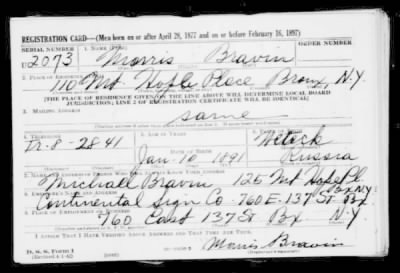 REGISTRATION CARD—(Men born on or after April 28, 1877 and on or before February 16, 1897)
SERIAL NUMBER 1. NAME (Print) ORDER NUMBER
U 2073 Morris Bravin
2. PLACE OF RESIDENCE (Print)
110 Mt Hope Place Bronx, N.Y.
[THE PLACE OF RESIDENCE GIVEN ON THE LINE ABOVE WILL DETERMINE LOCAL BOARD
JURISDICTION; LINE 2 OF REGISTRATION CERTIFICATE WILL BE IDENTICAL]
3. MAILING ADDRESS
same
4. TELEPHONE 5. AGE IN YEARS
8-2841 DATE OF BIRTH
Jan. 10 1891 Russia
Michael Bravin 125 Mt Hope Pl
Bx N.Y.
Continental Sign Co - 760 E. 137 St Bx
8. PLACE OF EMPLOYMENT OR BUSINESS
760 East 137 St Bx N.Y.
I AFFIRM THAT I HAVE VERIFIED ABOVE ANSWERS AND THAT THEY ARE TRUE.
D. S. S. Form 1
(Revised 4-1-42)
Morris Bravin